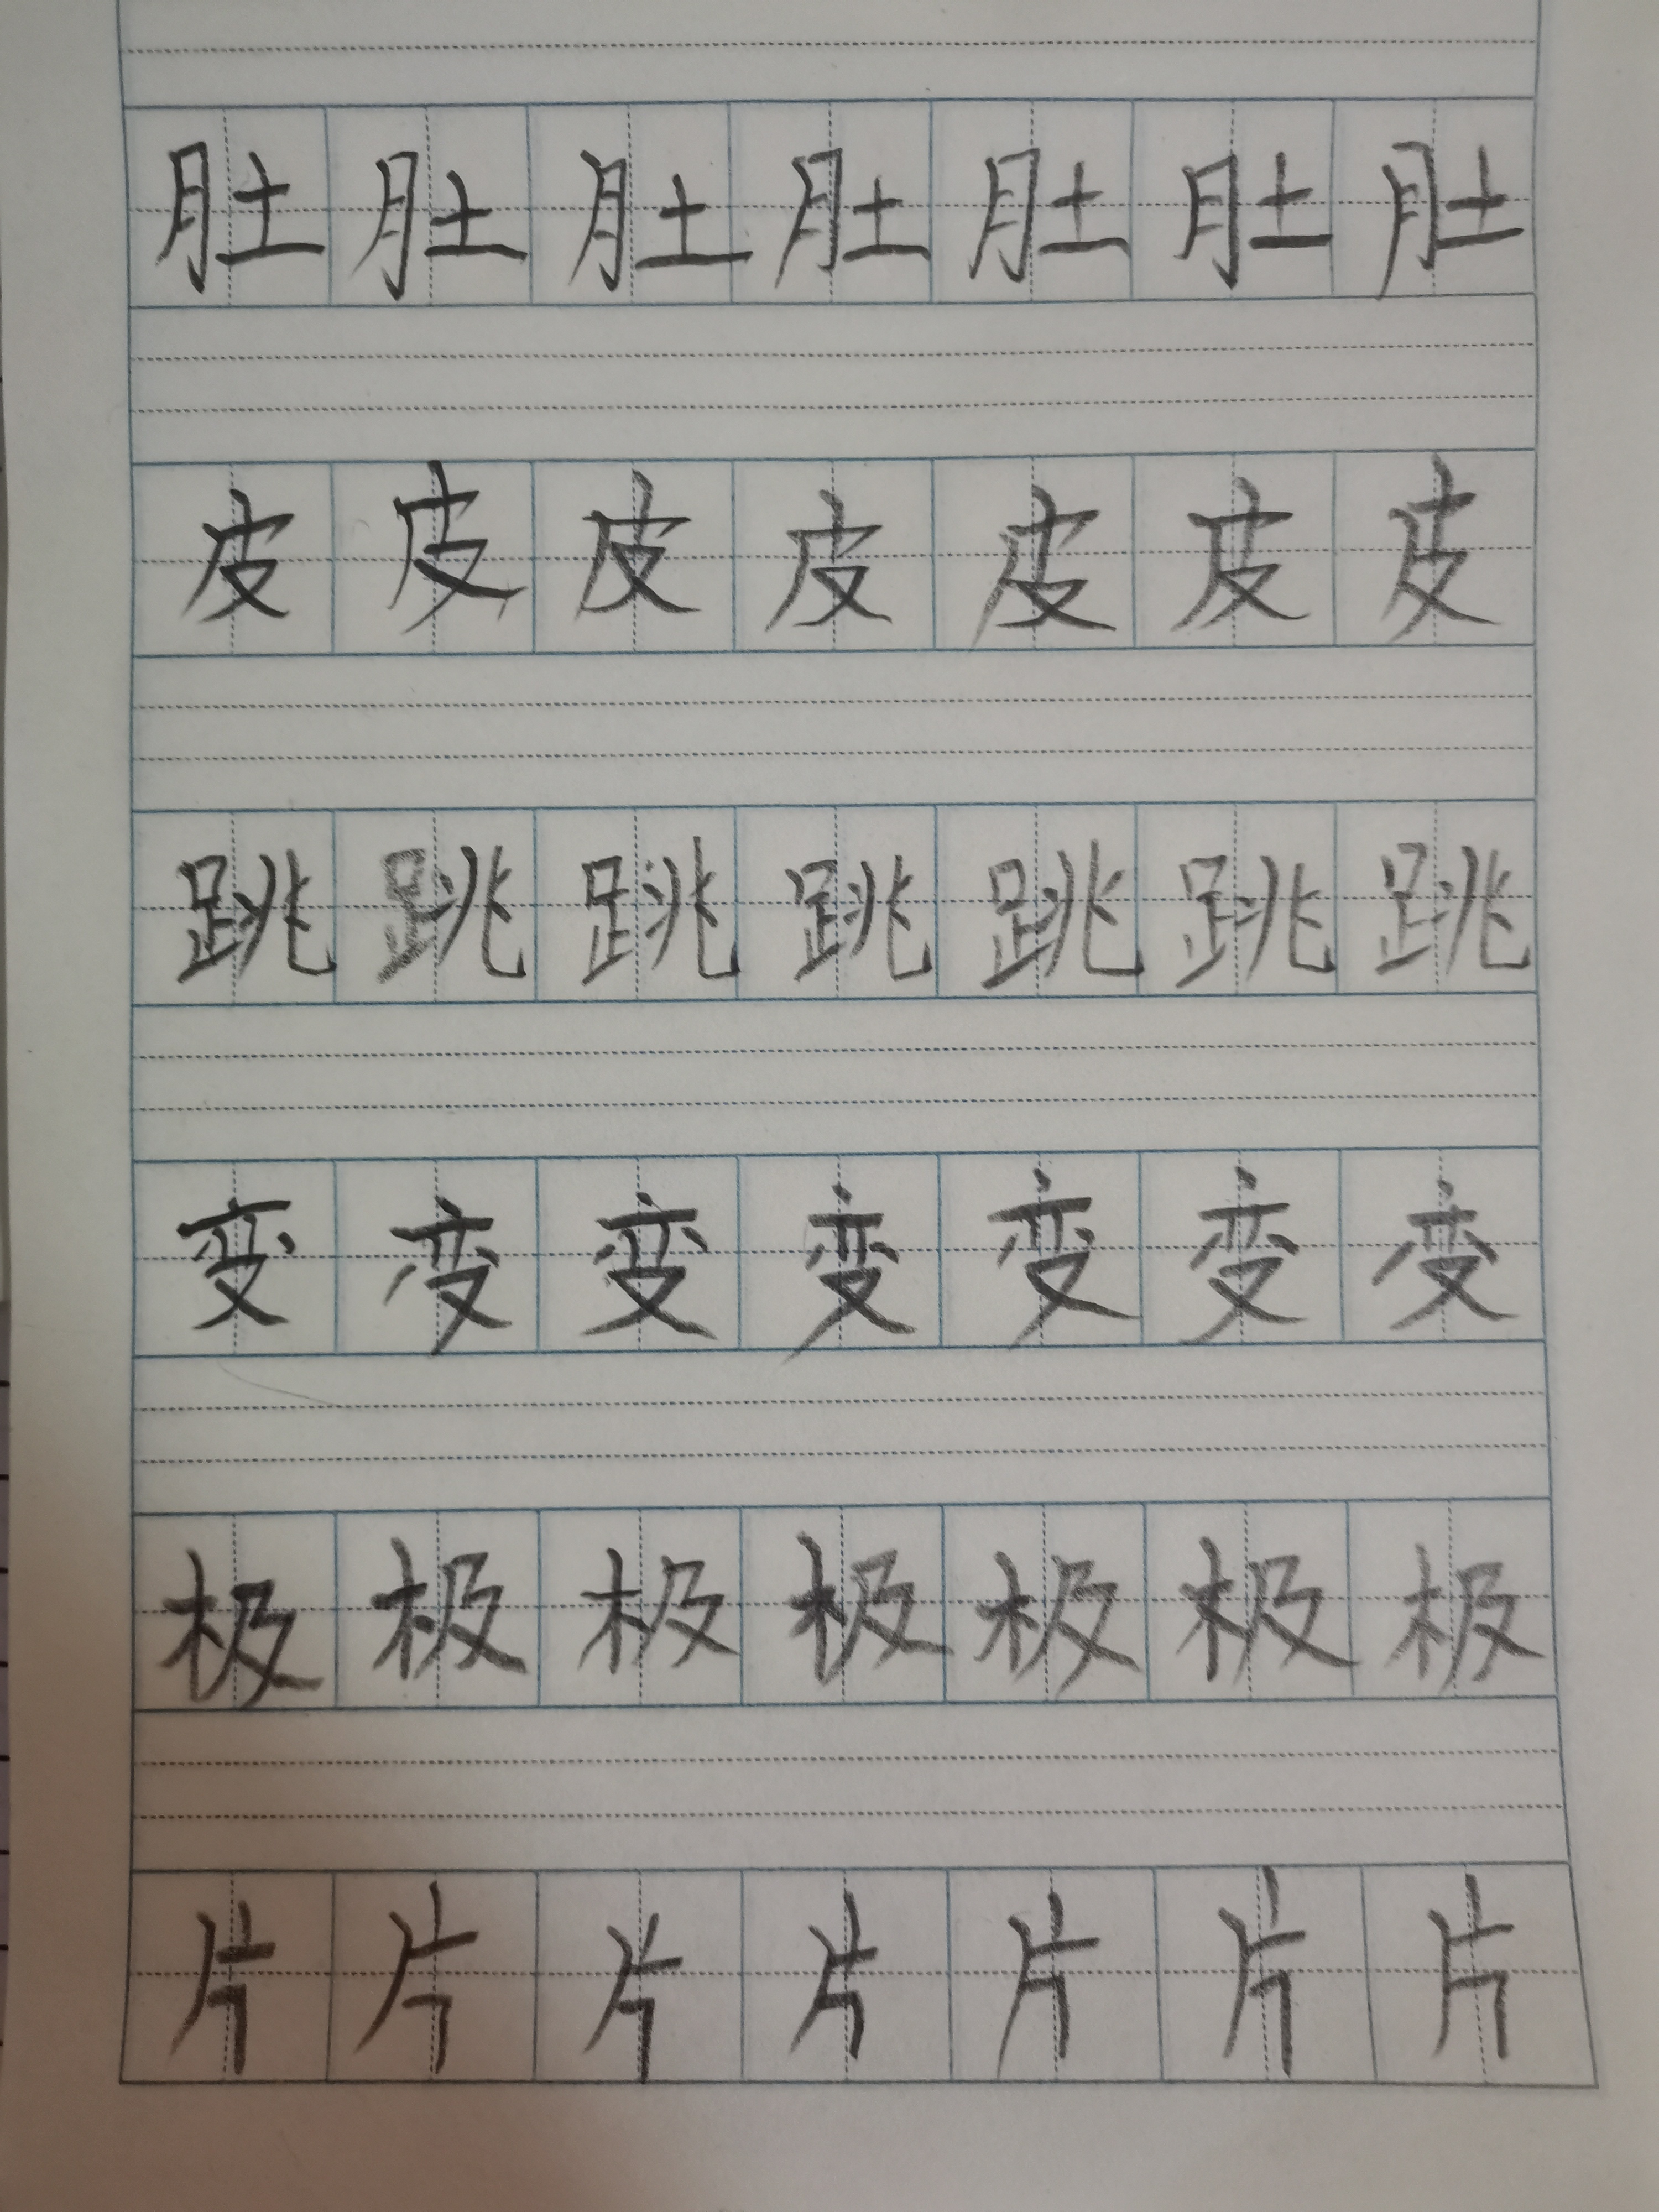 肚肚肚肚肚肚肚
皮皮皮皮皮皮皮
跳跳跳跳跳跳跳
变变变变变变变
极极极极极极极
片片片片片片片